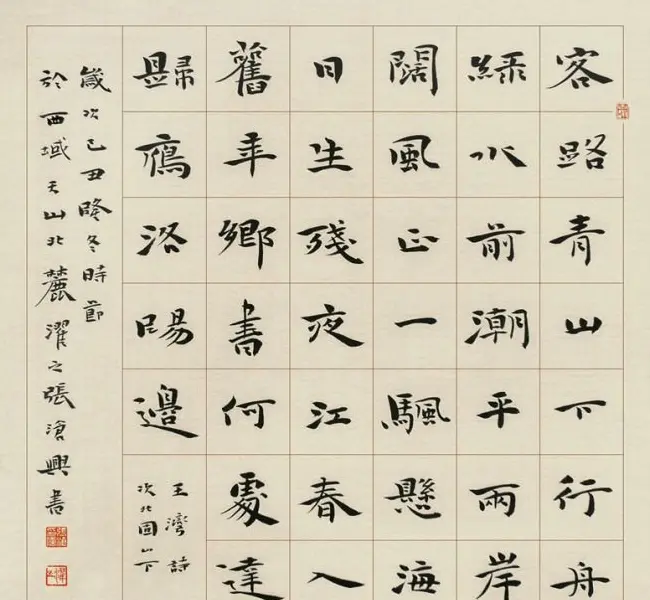 客路青山下行舟
綠水前潮平兩岸
闊風正一颿懸海
日生殘夜江春入
舊年鄉書何處達
歸鴈洛陽邊
王灣詩
次北固山下
歲次己丑隆冬時節
於西域天山北麓濯之張滄興書